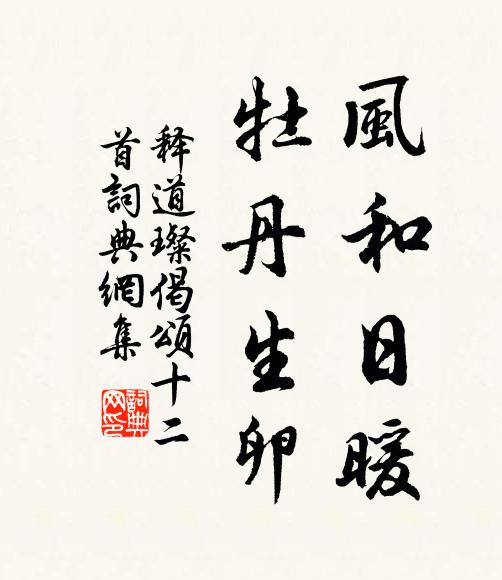 風和日暖
牡丹生卵
释道璨偈頌十二
首詞典網集
詞典
网印